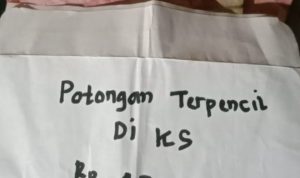 Potongan Terpencil
Di KS